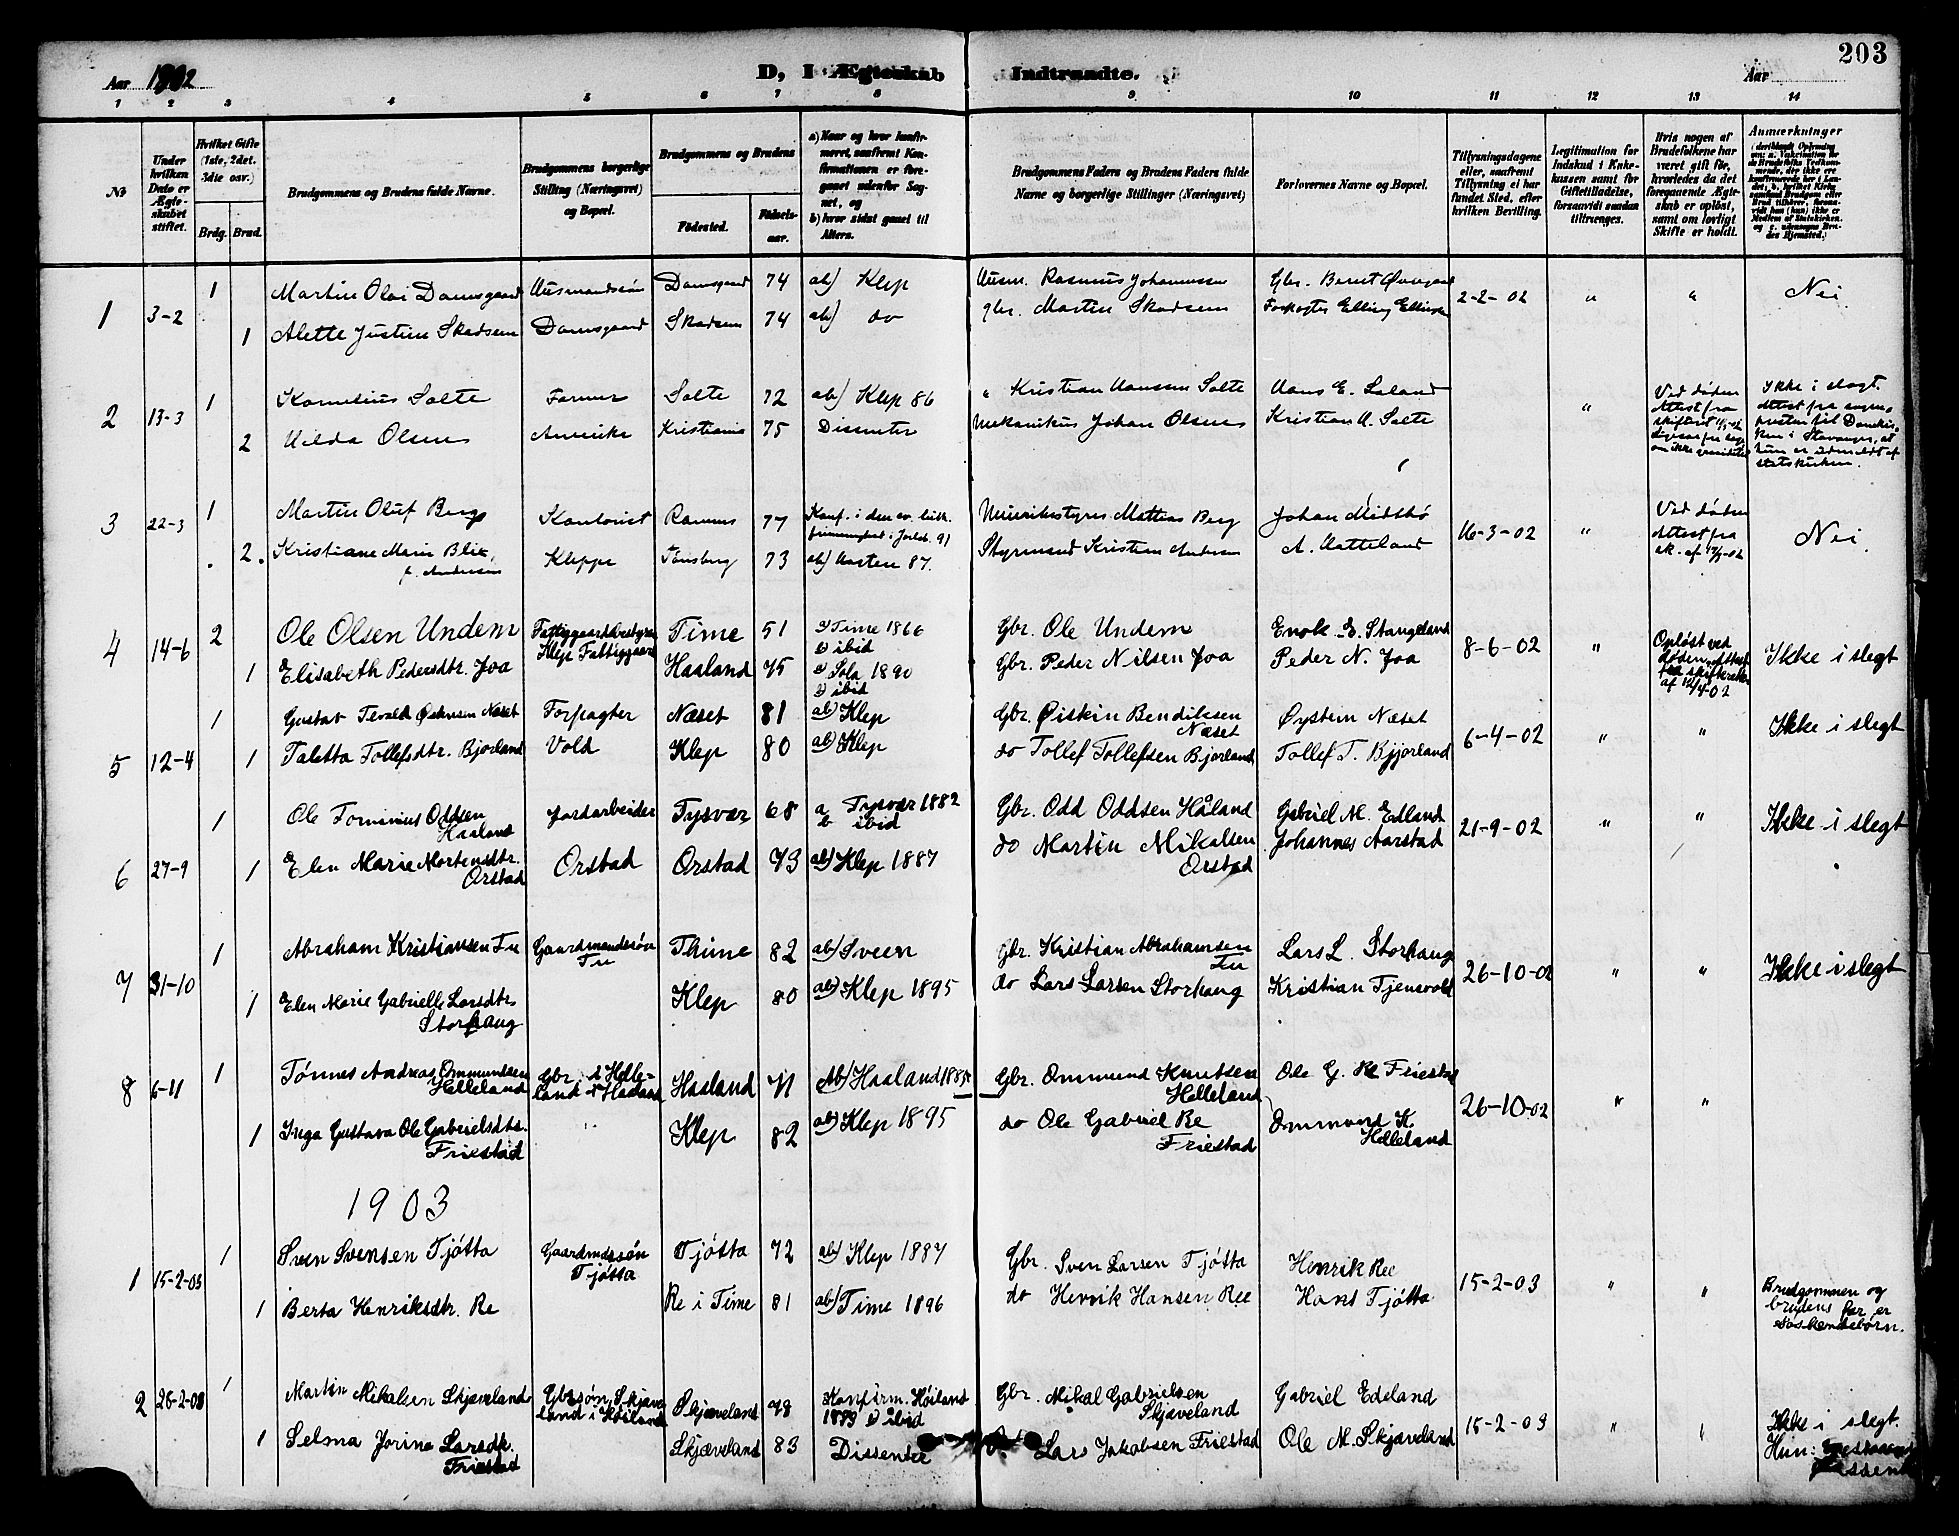 203
Aar 1902
D, I Ægteskab Indtraadte.
Aar
1 2 3 4 5 6 7 8 9 10 11 12 13 14
No
Under hvilken Dato er Ægteskabet stiftet.
Hvilket Gifte (1ste, 2det, 3die osv.)
Brdg. Brud.
Brudgommens og Brudens fulde Navne.
Brudgommens borgerlige Stilling (Næringsvei) og Bopæl.
Brudgommens og Brudens
Fødested. Fødselsaar.
a) Naar og hvor konfirmeret, saafremt Konfirmationen er foregaaet udenfor Sognet, og
b) hvor sidst gaaet til Alters.
Brudgommens Faders og Brudens Faders fulde Navne og borgerlige Stillinger (Næringsvei)
Forlovernes Navne og Bopæl.
Tillysningsdagene eller, saafremt Tillysning ei har fundet Sted, efter hvilken Bevilling.
Legitimation for Indskud i Enkekassen samt for Giftetilladelse, forsaavidt saadan tiltrænges.
Hvis nogen af Brudefolkene har været gift før, hvorledes da det foregaaende Ægteskab er opløst, samt om lovligt Skifte er holdt.
Anmærkninger
1 3-2 1 Martin Olai Damsgaard Husmandssøn Damsgaard 74 ab) Klep Husm. Rasmus Johannessen Gbr. Berent Øvregaard 2-2-02 " " Nei
1 Alette Justine Skadsem Damsgaard Skadsem 74 ab) do gbr. Martin Skadsem Forpagter Elling Ellingsen
2 13-3 1 Kornelius Salte Farmer Salte 72 ab) Klep 86 " Kristian Hansen Salte Hans E. Laland " Ved døden Attest fra
2 Hilda Olsen Amerika Kristiania 75 Dissenter Mekanikus Johan Olsen Kristian H. Salte
Ikke i slegt.
Attest fra sognepresten til Domkirken i Stavanger, at hun er udmeldt af statskirken.
3 22-3 1 Martin Oluf Berg Kontorist Ramnes 77 Konf. i den ev. luth. frimenighed i Jarlsb. 91 Meieribestyrer Mattias Berg Johan Midtbø 16-3-02 " Ved døden Attest fra sk. af 12/3-02 Nei
2. Kristiane Marie Blix, f. Andersen Kleppe Tønsberg 73 ab) Horten 87. Styrmand Kristian Andersen A. Hatteland
4 14-6 2 Ole Olsen Undem Fattiggaardbestyrer Time 51 a) Time 1866 b) ibid Gbr. Ole Undem Enok E. Stangeland 8-6-02 " Opløst ved døden, attest fra skifteretten af 12/4-02 Ikke i slegt
1 Elisabeth Pedersdtr. Joa Klep Fattiggaard Haaland 75 a) Sola 1890 b) ibid Gbr. Peder Nilsen Joa Peder N. Joa
5 12-4 1 Gustav Tevald Østensen Næset Forpagter Næset 81 ab) Klep Gbr. Øiskin Bendiksen Næset Øystein Næset 6-4-02 " " Ikke i slegt
1 Taletta Tollefsdtr. Bjorland Vold Klep 80 ab) Klep do Tollef Tollefsen Bjorland Tollef T. Bjorland
6 27-9 1 Ole Tominius Oddsen Haaland Jordarbeider Tysvær 68 a Tysvær 1882 b ibid Gbr. Odd Oddsen Håland Gabriel M. Edland 21-9-02 " " Ikke i slegt
1 Elen Marie Mortensdtr. Orstad Orstad Orstad 73 ab) Klep 1887 do Martin Mikalsen Orstad Johannes Aarstad
7 31-10 1 Abraham Kristiansen Tu Gaardmandssøn Tu Thime 82 ab) Sveen Gbr. Kristian Abrahamsen Tu Lars L. Storhaug 26-10-02 " " Ikke i slegt
1 Elen Marie Gabrielle Larsdtr. Storhaug Klep 80 ab) Klep 1895 do Lars Larsen Storhaug Kristian Tjensvold
8 6-11 1 Tønnes Andreas Ommundsen Helleland Gbr. i Helleland i Haaland Haaland 71 ab) Haaland 1885 Gbr. Ommund Knutsen Helleland Ole G. Re Friestad 26-10-02 " "
1 Inga Gustava Ole Gabrielsdtr. Friestad " Klep 82 ab) Klep 1895 do Ole Gabriel Re Friestad Ommund K. Helleland
1903
1 15-2-03 1 Sven Svensen Tjøtta Gaardmdssøn Tjøtta Tjøtta 72 ab) Klep 1887 Gbr. Sven Larsen Tjøtta Henrik Ree 15-2-03 " " Brudgommen og brudens far er Søskendebørn.
1 Berta Henriksdtr. Re Re i Time 81 ab) Time 1896 do Henrik Hansen Ree Hans Tjøtta
2 26-2-03 1 Martin Mikalsen Skjæveland Gbrsøn Skjæveland i Høiland Skjæveland 78 Konfirm. Høiland 1893 b) ibid Gbr. Mikal Gabrielsen Skjæveland Gabriel Edeland 15-2-03 " " Ikke i slegt.
1 Selma Jorine Larsdtr. Friestad Skjæveland 83 Dissenter Lars Jakobsen Friestad Ole M. Skjæveland Hun: